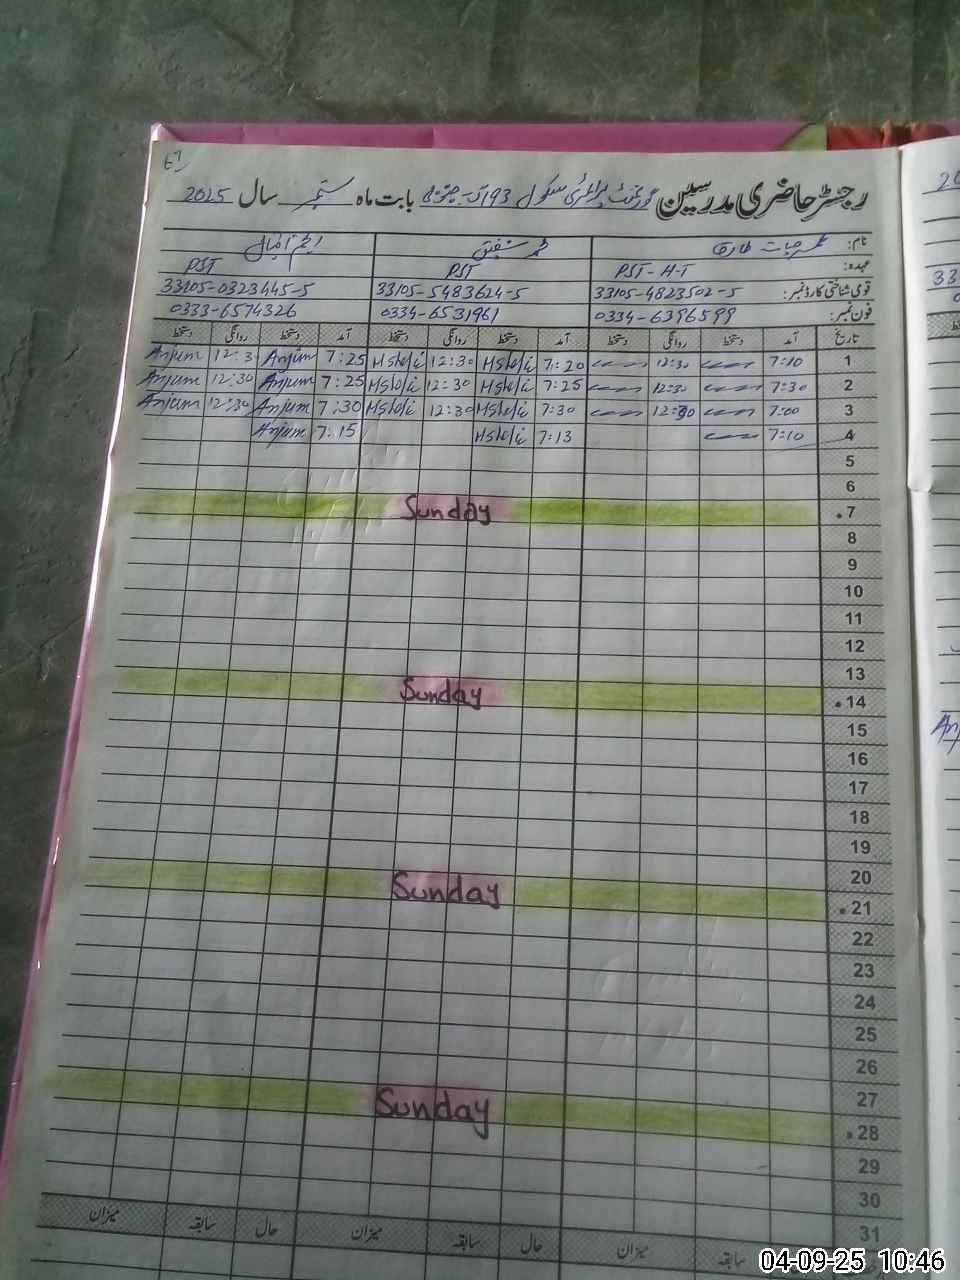 67
رجسٹر حاضری مدرسین گورنمنٹ پرائمری سکول 193 بابت ماہ ستمبر سال 2025
نام: عمر حیات طارق محمد شفیق انجم اقبال
عہدہ: PST-H-T PST PST
قومی شناختی کارڈ نمبر: 33105-4823502-5 33105-5483624-5 33105-0323445-5
فون نمبر: 0334-6396599 0334-6531961 0333-6574326
تاریخ آمد دستخط روانگی دستخط آمد دستخط روانگی دستخط آمد دستخط روانگی دستخط
1 7:10 12:30 7:20 12:30 7:25 Anjum 12:3 Anjum
2 7:30 12:30 7:25 12:30 7:25 Anjum 12:30 Anjum
3 7:00 12:30 7:30 12:30 7:30 Anjum 12:30 Anjum
4 7:10 7:13 7:15 Anjum
5
6
7 Sunday
8
9
10
11
12
13
14 Sunday
15
16
17
18
19
20
21 Sunday
22
23
24
25
26
27
28 Sunday
29
30
31
سابقہ میزان حال سابقہ میزان حال سابقہ میزان
20
33
0
Anj
04-09-25 10:46